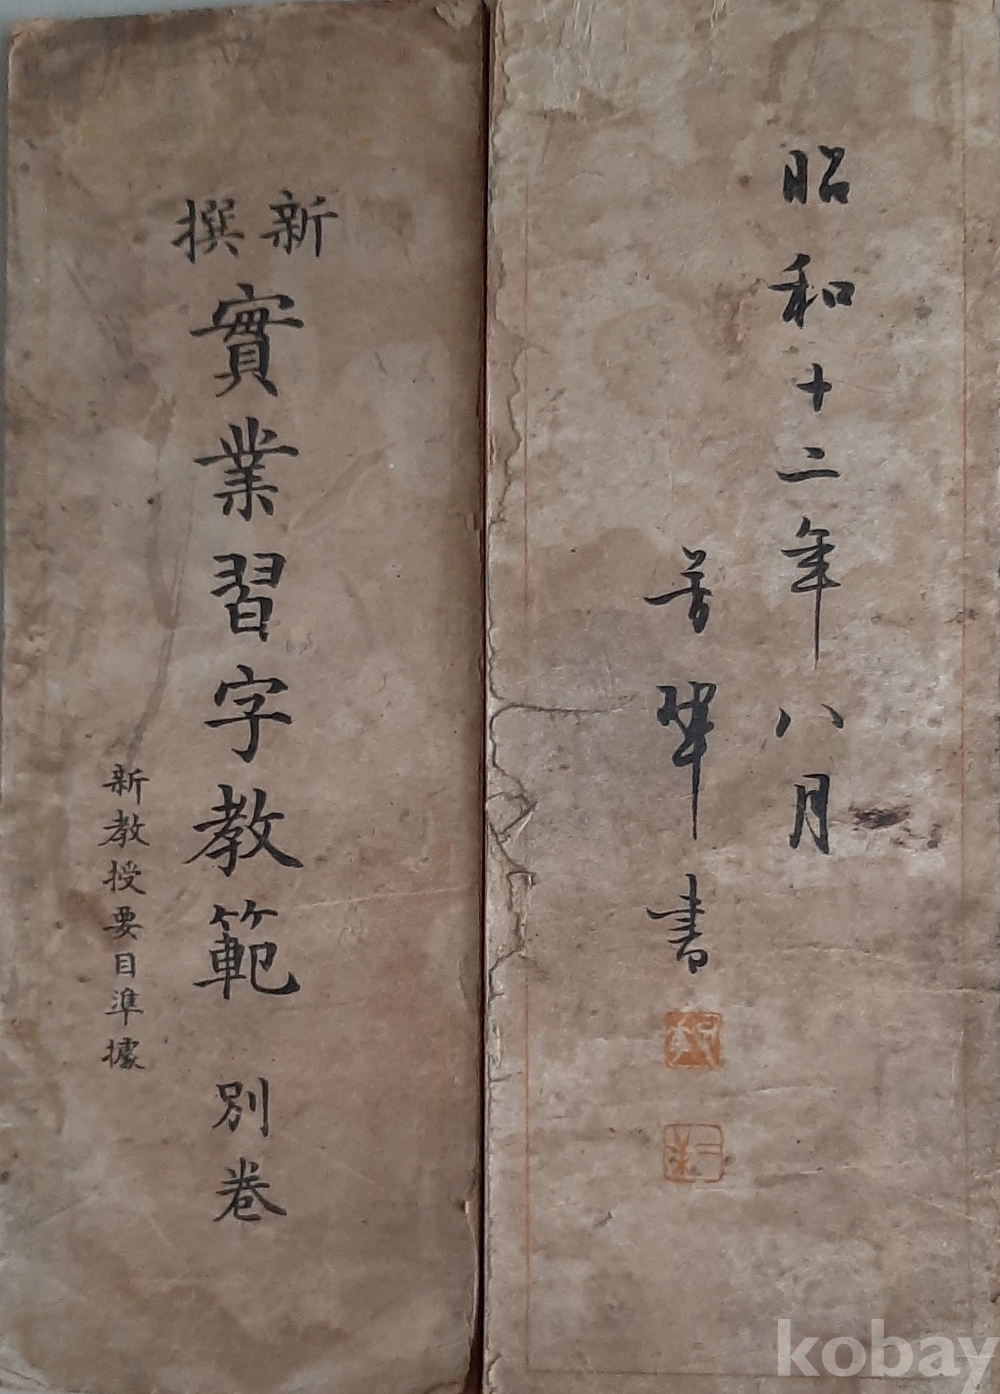 新撰
實業習字教範 別卷
新教授要目準據
昭和十二年八月
芳翠書
kobay